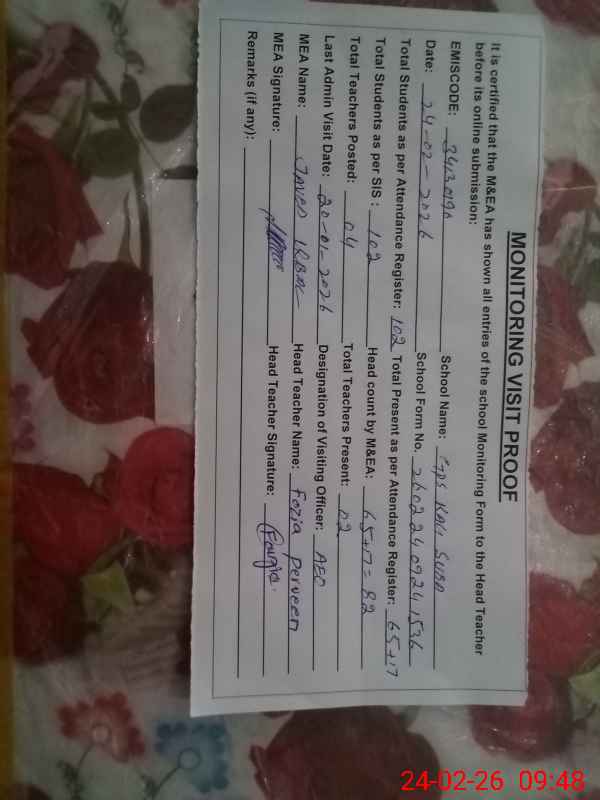 MONITORING VISIT PROOF
It is certified that the M&EA has shown all entries of the school Monitoring Form to the Head Teacher
before its online submission:
EMISCODE: 34130190 School Name: GPS
Date: 24-02-2026 School Form No. 26022409241536
Total Students as per Attendance Register: 102 Total Present as per Attendance Register: 65+17
Total Students as per SIS : 102 Head count by M&EA: 65+17=82
Total Teachers Posted: 04 Total Teachers Present: 02
Last Admin Visit Date: 20-01-2026 Designation of Visiting Officer: AEO
MEA Name: JAVED IQBAL Head Teacher Name: Fozia Perveen
MEA Signature: Head Teacher Signature: Fouzia
Remarks (if any):
24-02-26 09:48